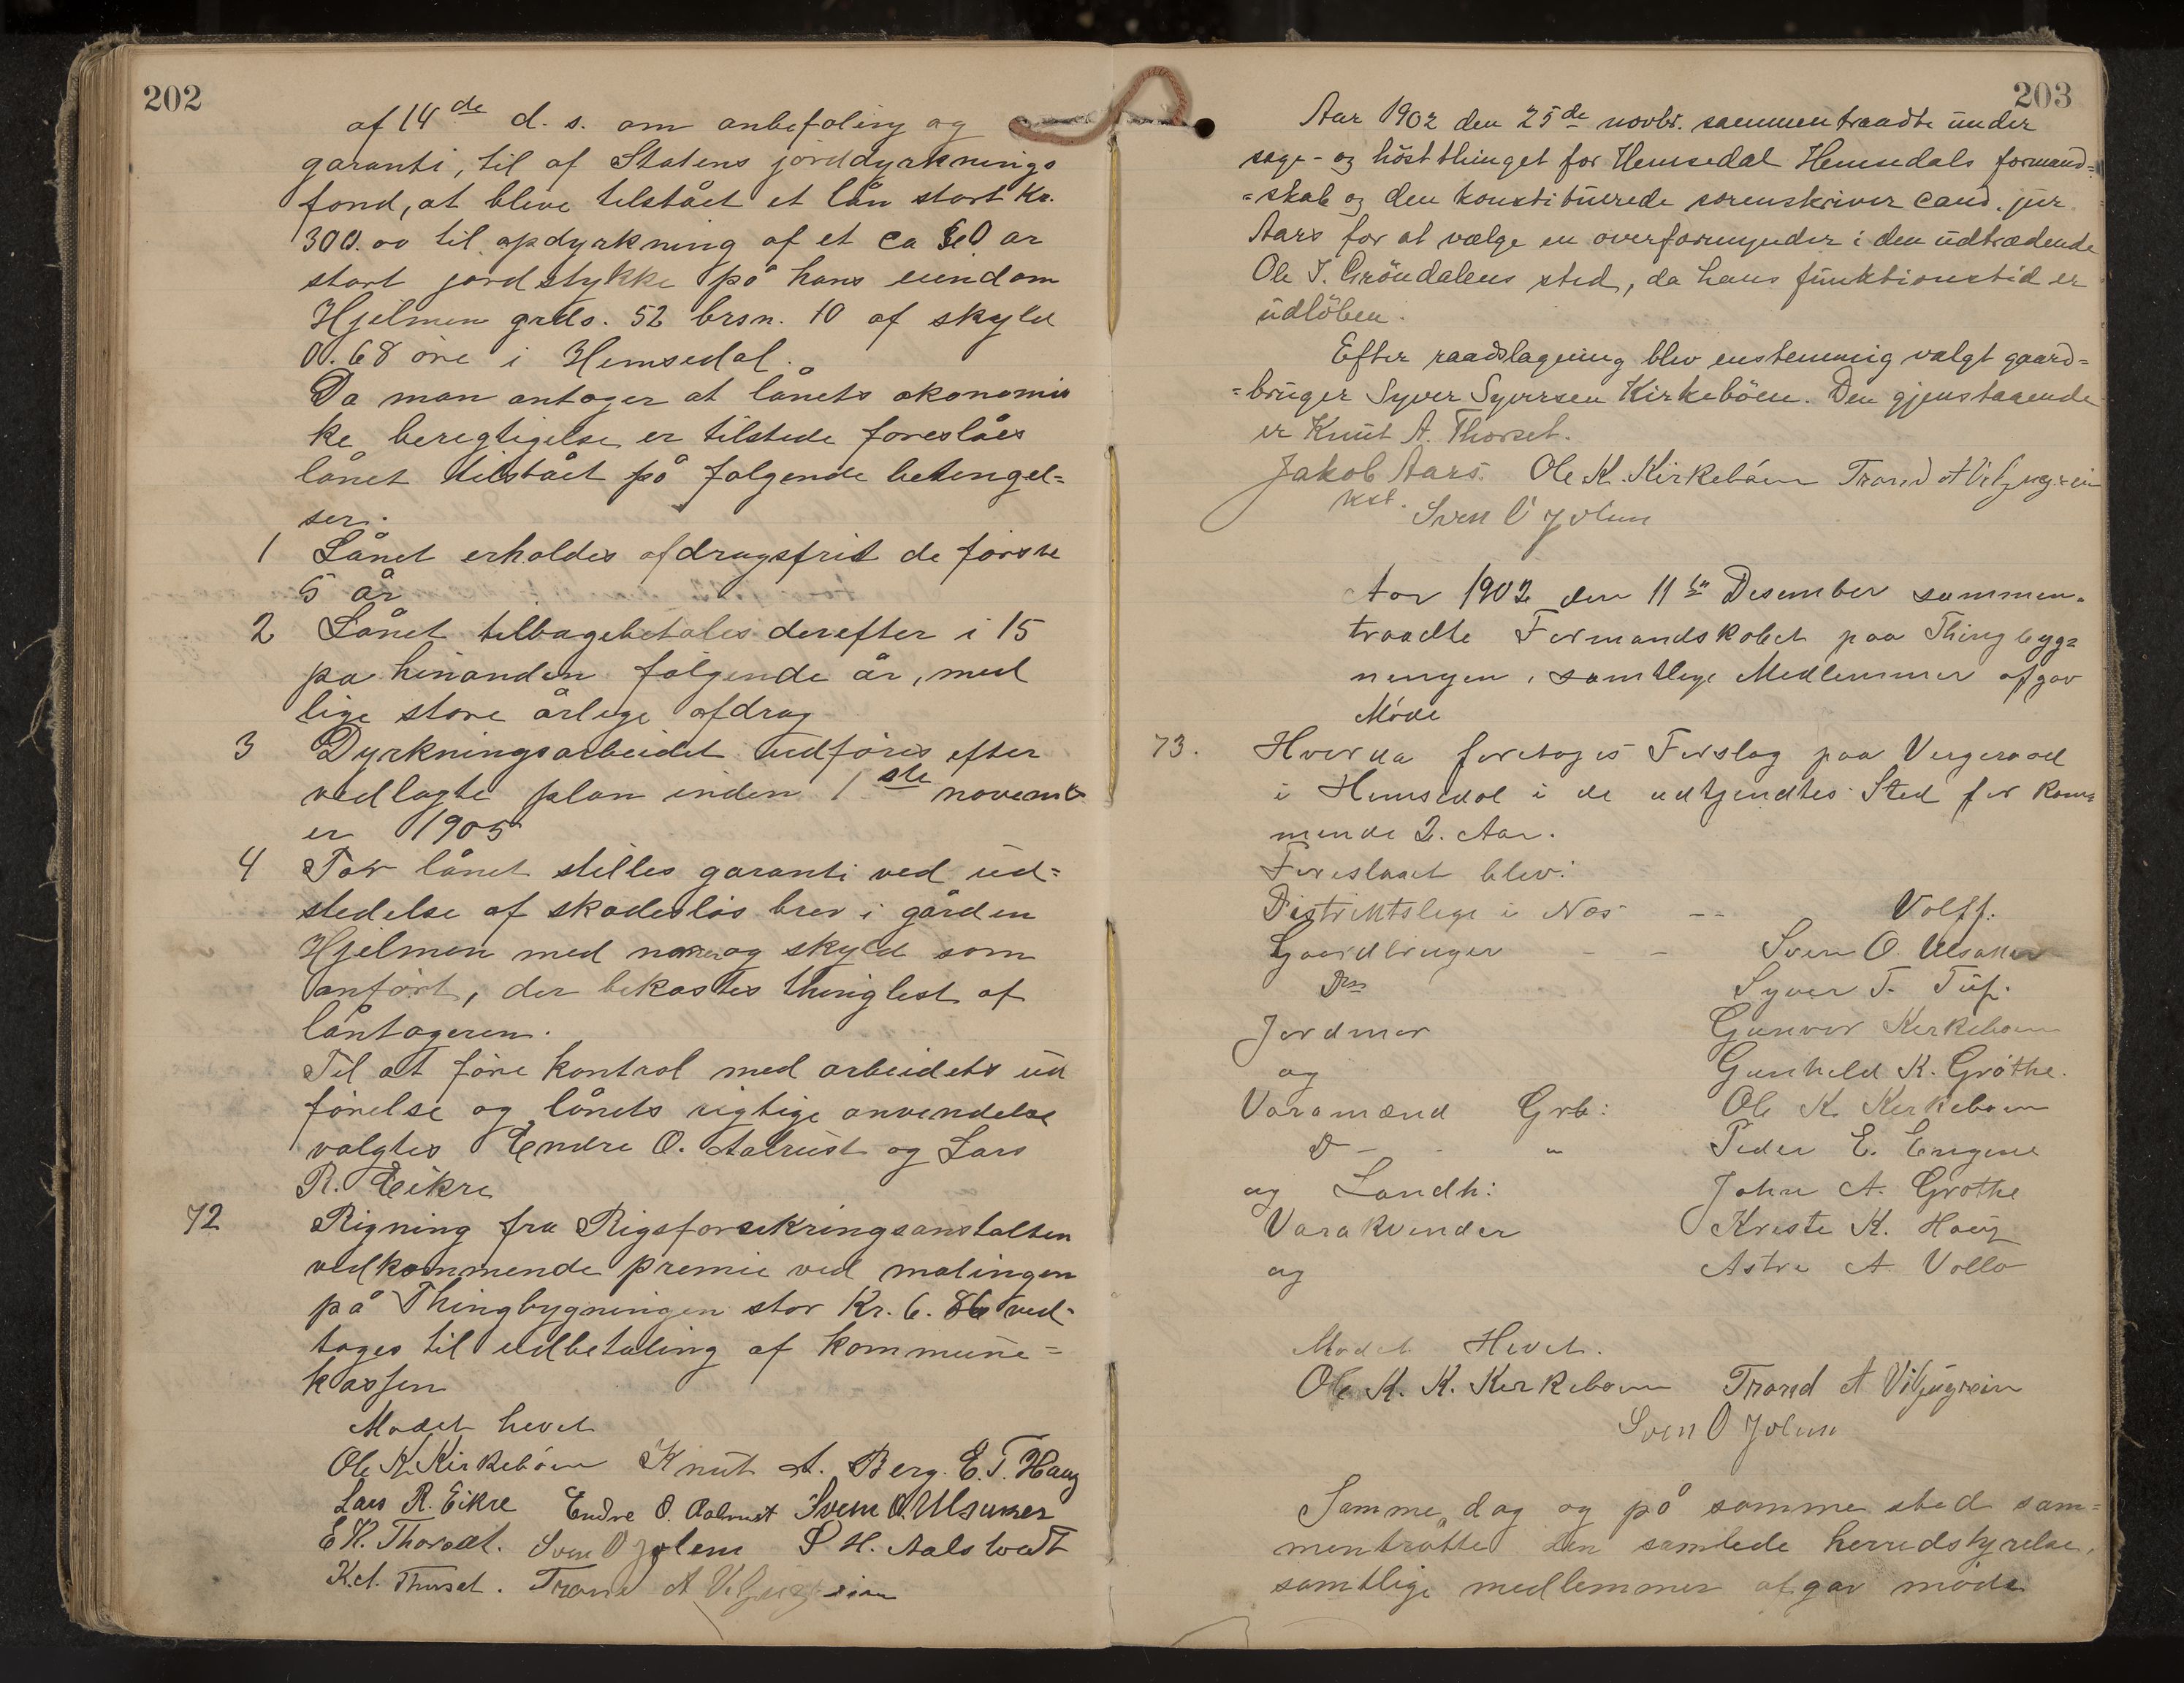 202
af 14de d. s. om anbefaling og
garanti, til af Statens jorddyrknings
fond, at blive tilstået et lån stort Kr.
300.00 til opdyrkning af et ca ar
stort jordstykke på hans eiendom
Hjelmen grds. 52 brsn. 10 af skyld
0.68 øre i Hemsedal.
Da man antager at lånets økonomis
ke beregtigelse er tilstede foreslåes
lånet tilstået på følgende betingel=
ser.
1 Lånet erholdes afdragsfrit de første
5 år
2 Lånet tilbagebetales derefter i 15
pa hinanden følgende år, med
lige store årlige afdrag
3 Dyrkningsarbeidet udføres efter
vedlagte plan inden 1ste novemb
er 1905
4 For lånet stilles garanti ved ud=
stedelse af skadesløs brev i gården
Hjelmen med og skyld som
anført, der bekostes thinglest af
låntageren.
Til at føre kontrol med arbeidets ud
førelse og lånets rigtige anvendelse
valgtes Endre O. Aalrust og Lars
R. Eikre
72 Rigning fra Rigsforsikringsanstalten
vedkommende premie ved malingen
på Thingbygningen stor Kr. 6.86 ved=
toges til udbetaling af kommune=
kassen
Mødet hevet
Ole K. Kirkebøen Knut A. Berg. E. T. Haug
Lars R. Eikre Endre O. Aalrust Sven O. Ulsaker
E K. Thorset. Sven O Jolem H. Aalstvedt
K.A. Thorset. Trond A Viljugrein
203
Aar 1902 den 25de novbr. sammentraadte under
sage- og høstthinget for Hemsedal Hemsedals formand=
=skab og den konstituerede sorenskriver cand. jur.
Aars for at vælge en overformynder i den udtrædende
Ole I. Grøndalens sted, da hans funktionstid er
udløben.
Efter raadslagning blev enstemmig valgt gaard=
=bruger Syver Syversen Kirkebøen. Den gjenstaaende
er Knut A. Thorset.
Jakob Aars. Ole K. Kirkebøen Trond A Viljugrein
kst. Sven O Jolem
Aar 1902 den 11te Desember sammen=
traadte Formandskabet paa Thingbyg=
ningen, samtlige Medlemmer afgav
Møde
73. Hvorda foretoges Forslag paa Vergeraad
i Hemsedal i de udtjendtes Sted for kom=
mende 2. Aar.
Foreslaaet blev:
Distriktslege i Nes -- Volff.
Gaardbruger - - Sven O. Ulsaker
Do Syver T. Tuf.
Jordmor Gunvor Kirkebøen
og Gunhild K. Grøthe.
Varamænd Grb: Ole K Kirkebøen
D - - " Peder E. Engene
og Landh: John A. Grøthe
Varakvinder Kriste K. Haug
og Astri A Vollo
Mødet Hevet.
Ole K. K. Kirkebøen Trond A Viljugrein
Sven O Jolem
Samme dag og på samme sted sam=
mentråtte den samlede herredstyrelse,
samtlige medlemmer afgav møde